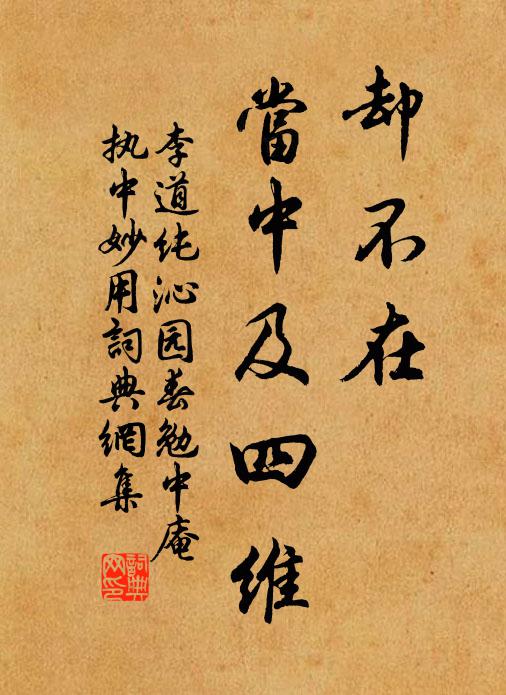 却不在
當中及四維
李道纯沁园春勉中庵
执中妙用詞典網集
詞典
网印